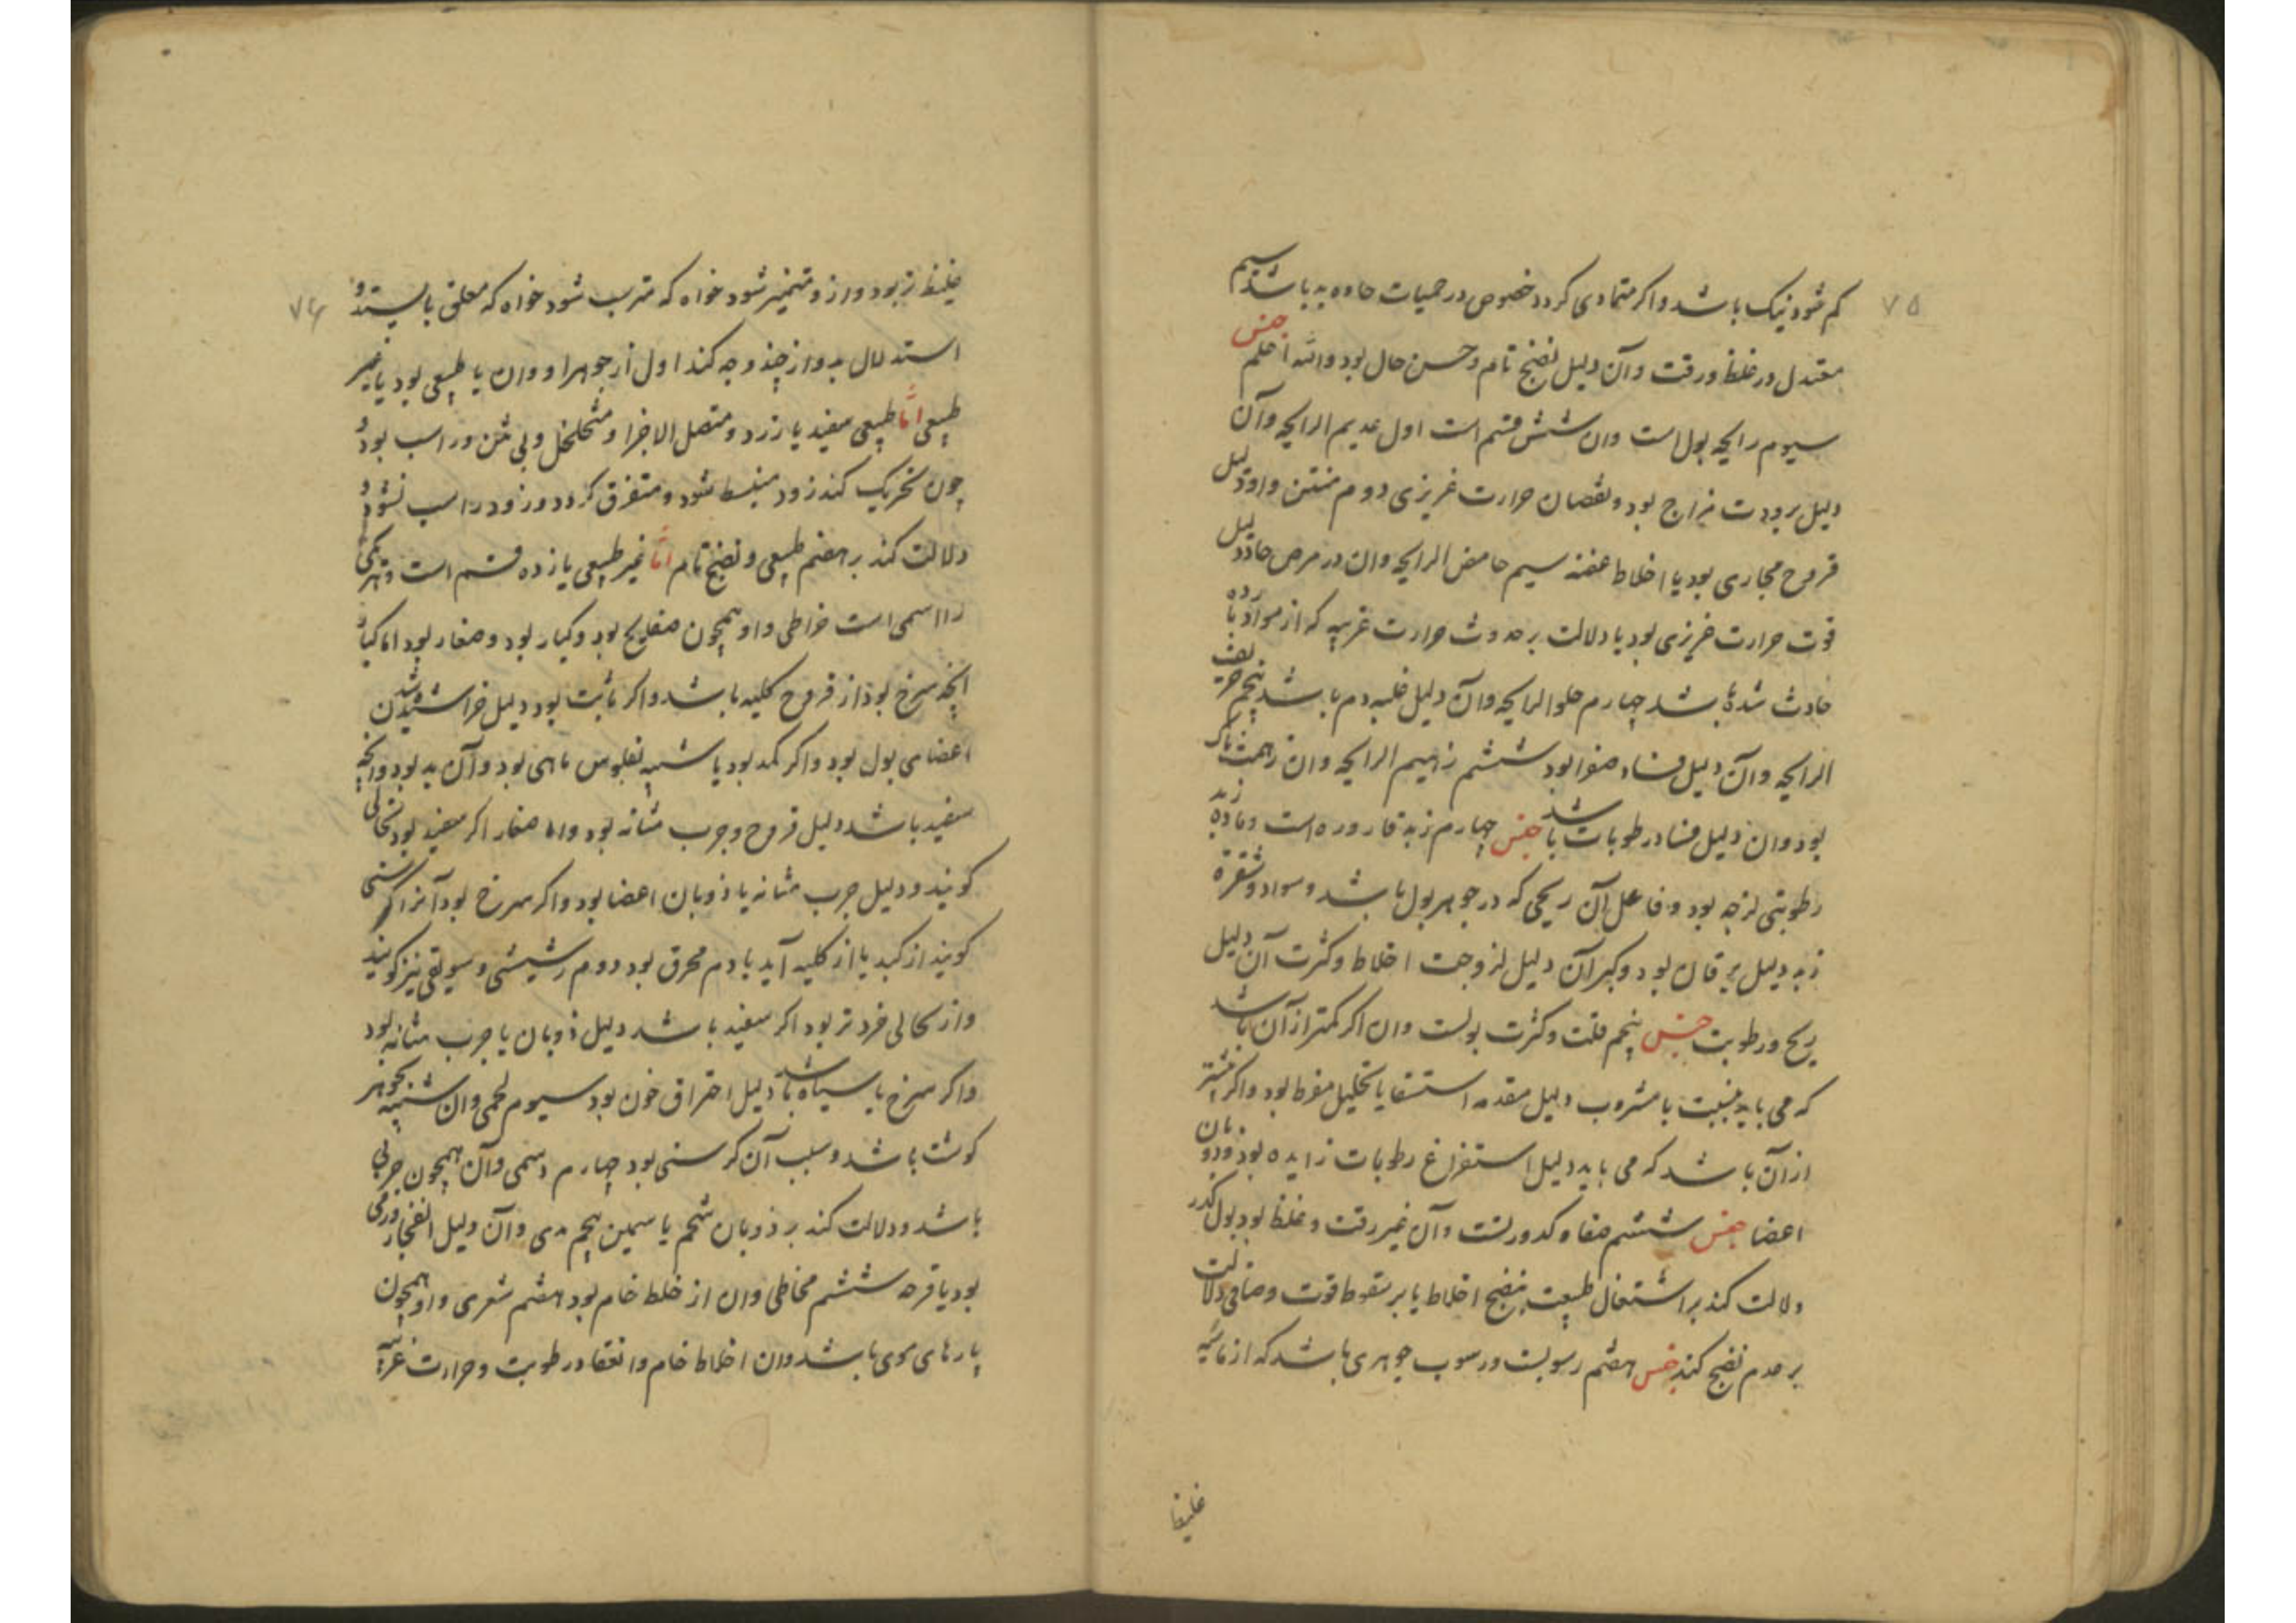 ۷۵
کم شود نیک باشد و اکر متمادی کردد خصوص در حمیات حاده بد باشد سیم
معتدل در غلظ و رقت و آن دلیل نضج تام و حسن حال بود والله اعلم جنس
سیوم رایحه بول است و ان شش قسم است اول عدیم الرایحه و آن
دلیل برودت مزاج بود و نقصان حرارت غریزی دوم منتن و او دلیل
قروح مجاری بود یا اخلاط عفنه سیم حامض الرایحه و ان در مرض حاد دلیل
قوت حرارت غریزی بود یا دلالت بر حدوث حرارت غریبه که از مواد بارده
حادث شده باشد چهارم حلو الرایحه و آن دلیل غلبه دم باشد پنجم حریف
الرایحه و آن دلیل فساد صفرا بود ششم زهیم الرایحه و ان زهمت ناک
بود و ان دلیل فساد رطوبات باشد جنس چهارم زبد قاروره است و ماده زبد
رطوبتی لزجه بود و فاعل آن ریحی که در جوهر بول باشد و سواد و شقره
زبد دلیل یرقان بود و کبر آن دلیل لزوجت اخلاط و کثرت آن دلیل
ریح و رطوبت جنس پنجم قلت و کثرت بولست و ان اکر کمتر از آن باشد
که می باید بنسبت با مشروب دلیل مقدمه استسقا یا تحلیل مفرط بود و اکر بیشتر
از آن باشد که می باید دلیل استفراغ رطوبات زایده بود و ذوبان
اعضا جنس ششم صفا و کدورتست و آن غیر رقت و غلظ بود بول کدر
دلالت کند بر اشتغال طبیعت بنضج اخلاط یا بر سقوط قوت و صافی دلالت
بر عدم نضج کند جنس هفتم رسوبست و رسوب جوهری باشد که از مائیه
غلیظ
۷۶
غلیظ تر بود و از و متمیز شود خواه که مترسب شود خواه که معلق بایستد و
استدلال بدو از چند وجه کند اول از جوهر او و ان یا طبیعی بود یا غیر
طبیعی اما طبیعی سفید یا زرد و متصل الاجزا و متخلخل و بی نتن و راسب بود و
چون تحریک کند زود منبسط شود و متفرق کردد و زود راسب نشود و
دلالت کند بر هضم طبیعی و نضج تام اما غیر طبیعی یازده قسم است و هر یکی
را اسمی است خراطی و او همچون صفایح بود و کبار بود و صغار بود اما کبار
انچه سرخ بود از قروح کلیه باشد و اکر ثابت بود دلیل خراشیده شدن
اعضای بول بود و اکر کمد بود یا شبیه بفلوس ماهی بود و آن بد بود و انچه
سفید باشد دلیل قروح و جرب مثانه بود و اما صغار اکر سفید بود نخالی
کویند و دلیل جرب مثانه یا ذوبان اعضا بود و اکر سرخ بود آنرا کرسنی
کویند از کبد یا از کلیه آید یا دم محرق بود دوم رشیشی و سویقی نیز کویند
و از نخالی خردتر بود اکر سفید باشد دلیل ذوبان یا جرب مثانه بود
و اکر سرخ یا سیاه باشد دلیل احتراق خون بود سیوم لحمی و ان شبیه بجوهر
کوشت باشد و سبب آن کرسنی بود چهارم دسمی و آن همچون چربی
باشد و دلالت کند بر ذوبان شحم یا سمین پنجم مدی و آن دلیل انفجار ورمی
بود یا قرحه ششم مخاطی و ان از خلط خام بود هفتم شعری و او همچون
پارهای موی باشد و ان اخلاط خام و انعقاد رطوبت و حرارت غریبه